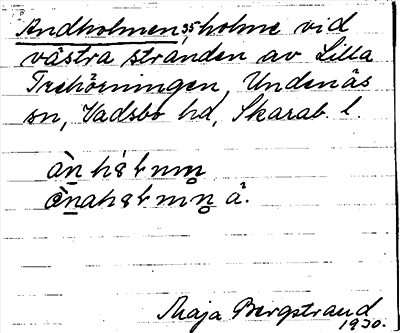 Andholmen, 35 holme vid
västra stranden av Lilla
Trehörningen, Undenäs
sn, Vadsbo hd, Skarab. l.
Maja Bergstrand
1930.